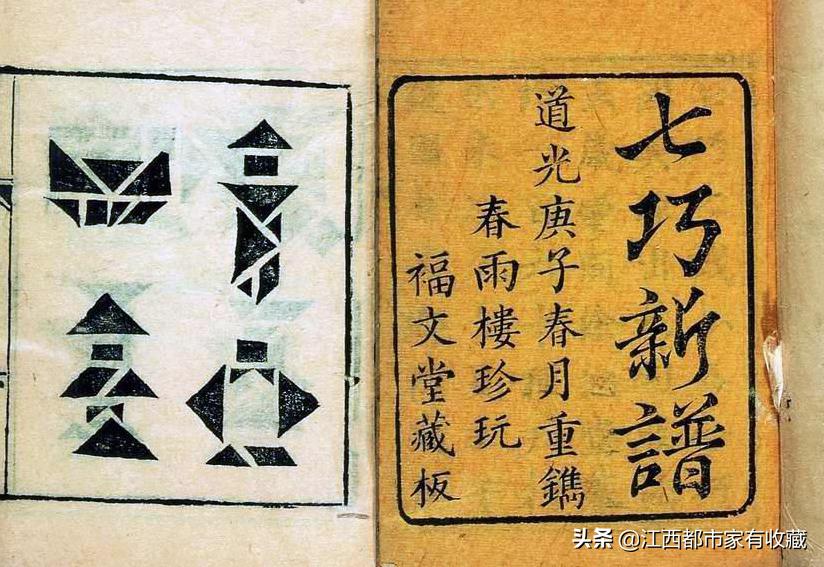 七巧新譜
道光庚子春月重鐫
春雨樓珍玩
福文堂藏板
头条 @江西都市家有收藏